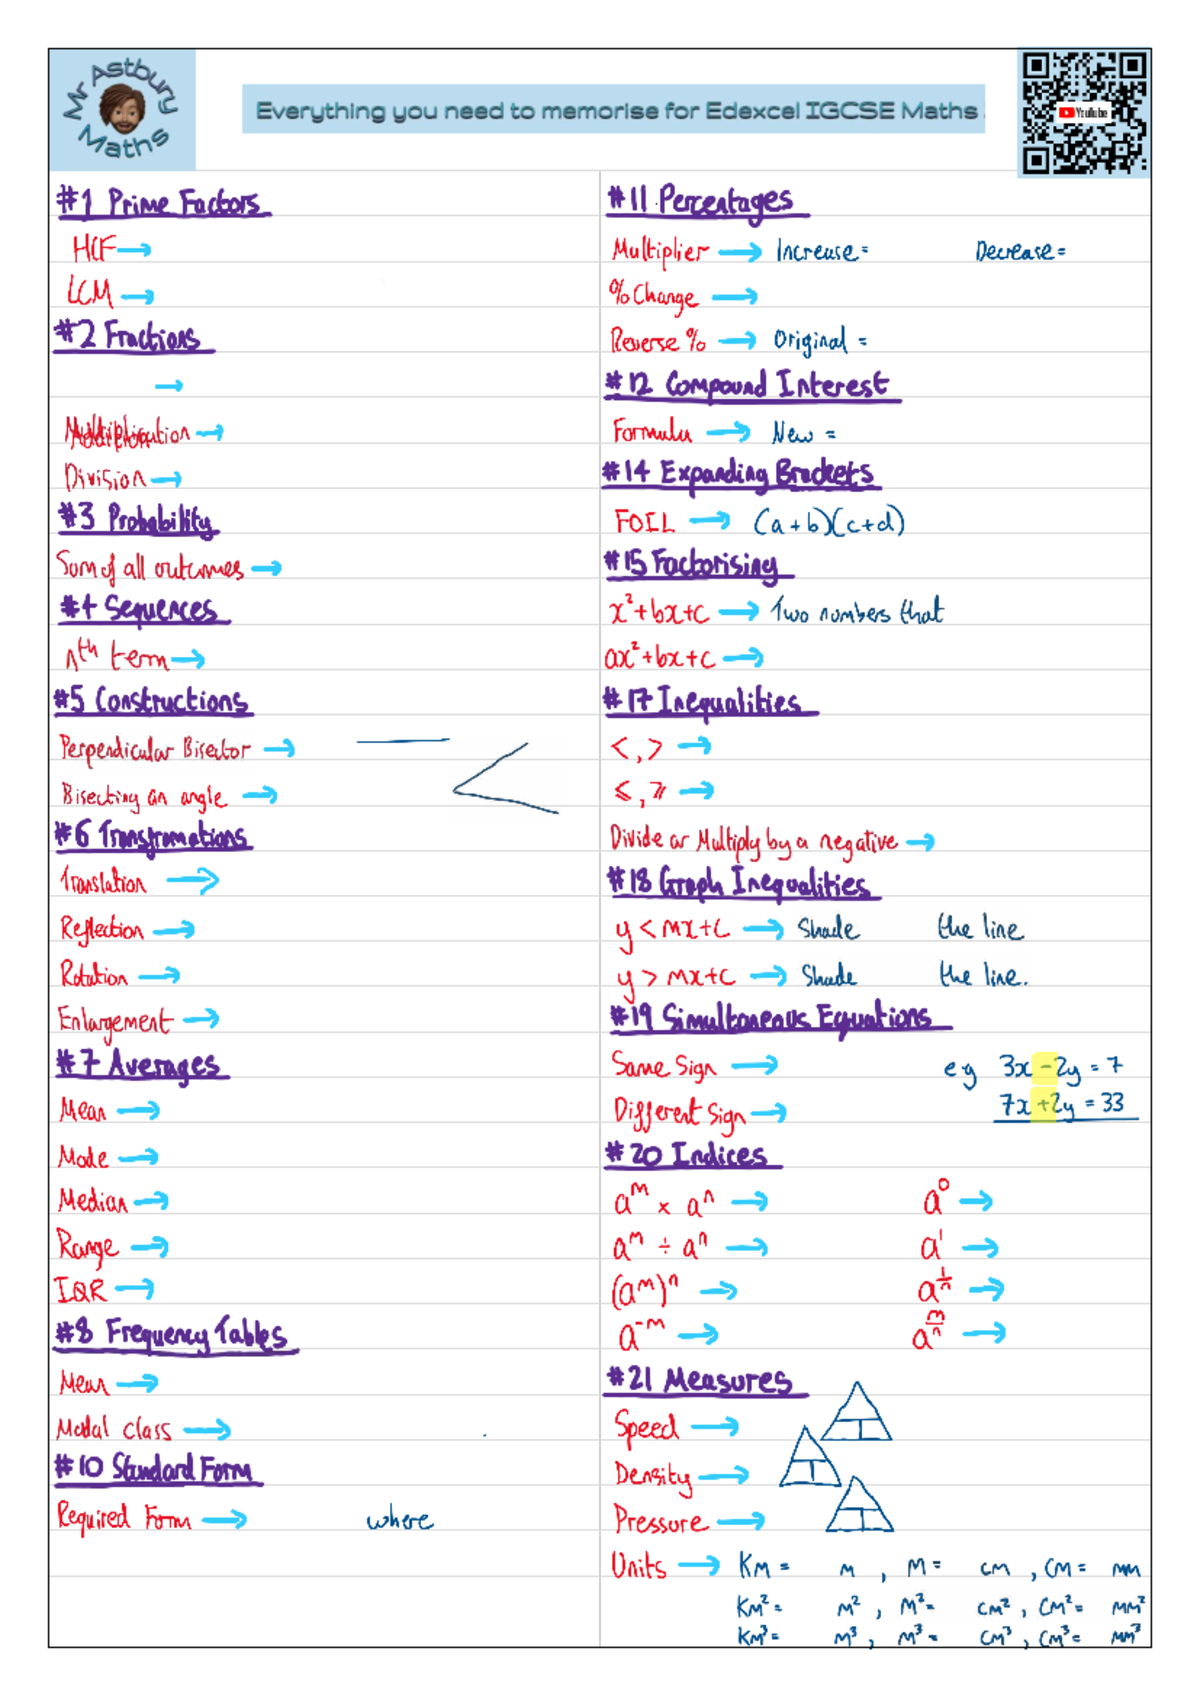 Mr Astbury Maths
Everything you need to memorise for Edexcel IGCSE Maths
YouTube
#1 Prime Factors
HCF →
LCM →
#2 Fractions
→
Multiplication →
Division →
#3 Probability
Sum of all outcomes →
#4 Sequences
nth term →
#5 Constructions
Perpendicular Bisector →
Bisecting an angle →
#6 Transfromations
Translation →
Reflection →
Rotation →
Enlargement →
#7 Averages
Mean →
Mode →
Median →
Range →
IQR →
#8 Frequency Tables
Mean →
Modal class →
#10 Standard Form
Required Form → where
#11 Percentages
Multiplier → Increase = Decrease =
% Change →
Reverse % → Original =
#12 Compound Interest
Formula → New =
#14 Expanding Brackets
FOIL → (a+b)(c+d)
#15 Factorising
x²+bx+c → Two numbers that
ax²+bx+c →
#17 Inequalities
<, > →
≤, ≥ →
Divide or Multiply by a negative →
#18 Graph Inequalities
y < mx+c → Shade the line
y > mx+c → Shade the line.
#19 Simultaneous Equations
Same Sign → eg 3x -2y = 7
Different Sign → 7x +2y = 33
#20 Indices
aᵐ × aⁿ → a⁰ →
aᵐ ÷ aⁿ → a¹ →
(aᵐ)ⁿ → a^(1/n) →
a⁻ᵐ → a^(m/n) →
#21 Measures
Speed →
Density →
Pressure →
Units → Km = m , m = cm , cm = mm
Km² = m² , m² = cm² , cm² = mm²
Km³ = m³ , m³ = cm³ , cm³ = mm³